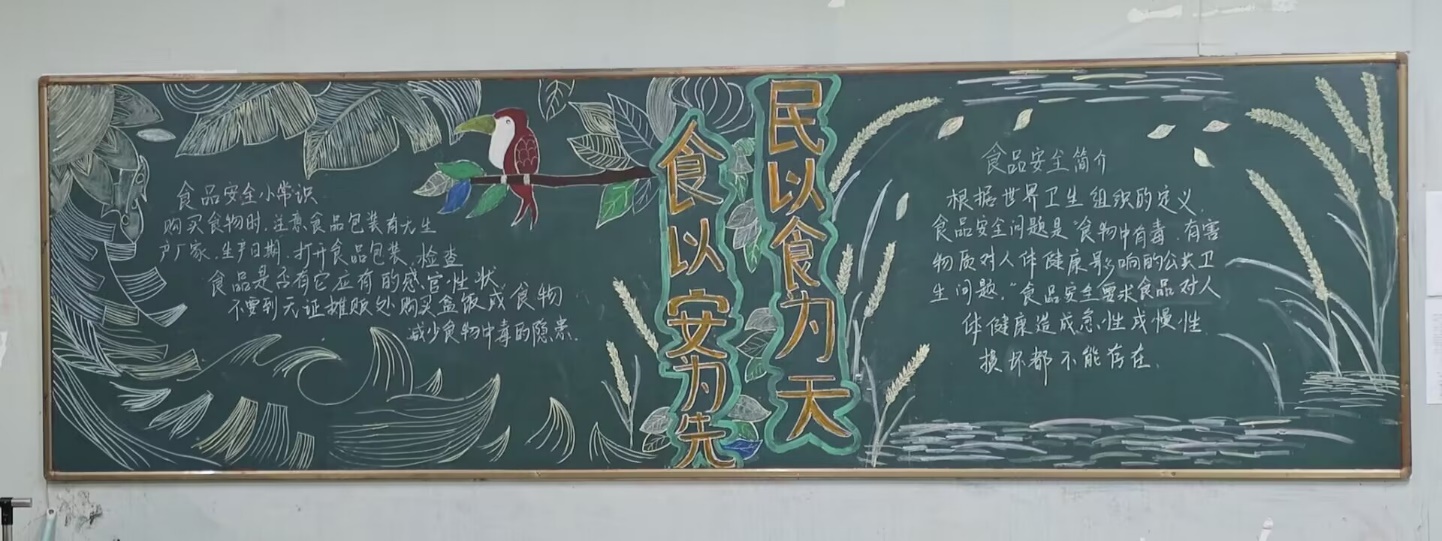 民以食为天
食以安为先
食品安全小常识
购买食物时.注意食品包装有无生
产厂家.生产日期.打开食品包装.检查
食品是否有它应有的感官性状.
不要到无证摊贩处购买盒饭或食物
减少食物中毒的隐患.
食品安全简介
根据世界卫生组织的定义,
食品安全问题是“食物中有毒、有害
物质对人体健康影响的公共卫
生问题.”食品安全要求食品对人
体健康造成急性或慢性
损坏都不能存在.